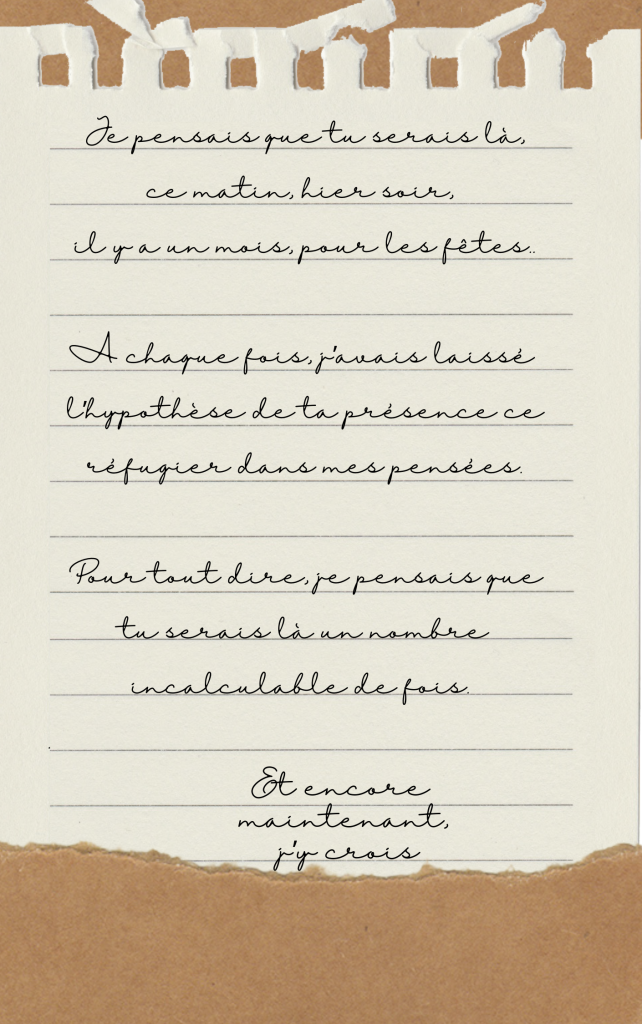 Je pensais que tu serais là,
ce matin, hier soir,
il y a un mois, pour les fêtes..
A chaque fois, j'avais laissé
l'hypothèse de ta présence ce
réfugier dans mes pensées.
Pour tout dire, je pensais que
tu serais là un nombre
incalculable de fois.
Et encore
maintenant,
j'y crois